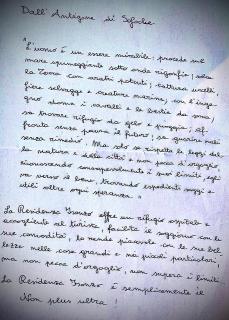 Dall'Antigone di Sofocle
"L'uomo è un essere mirabile: procede sul
mare spumeggiante sotto onde rigonfie; solca
la Terra con aratri potenti; cattura uccelli,
fiere selvagge e creature marine; con l'inge
gno doma i cavalli e le bestie da soma;
sa trovare rifugio da gelo e pioggia; af
fronta senza paura il futuro; sa guarire mali
senza rimedio. Ma solo se rispetta le leggi del
la natura e della città e non pecca d'orgoglio
riconoscendo consapevolmente i suoi limiti, egli
va verso il bene, trovando espedienti saggi e
utili oltre ogni speranza."
La Residenza Isonzo offre un rifugio ospitale e
accogliente al turista, facilita il soggiorno con le
sue comodità, lo rende piacevole con le sue bel
lezze nelle cose grandi e nei piccoli particolari,
ma non pecca d'orgoglio, non supera i limiti.
La Residenza Isonzo è semplicemente il
Non plus ultra!